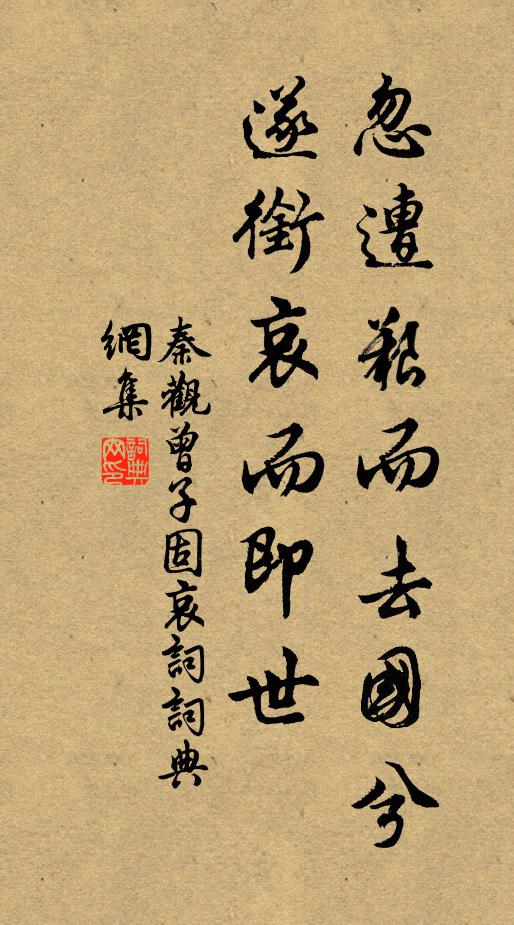 忽遭艱而去國兮
遂銜哀而即世
秦觀曾子固哀詞詞典
網集
詞典
网印